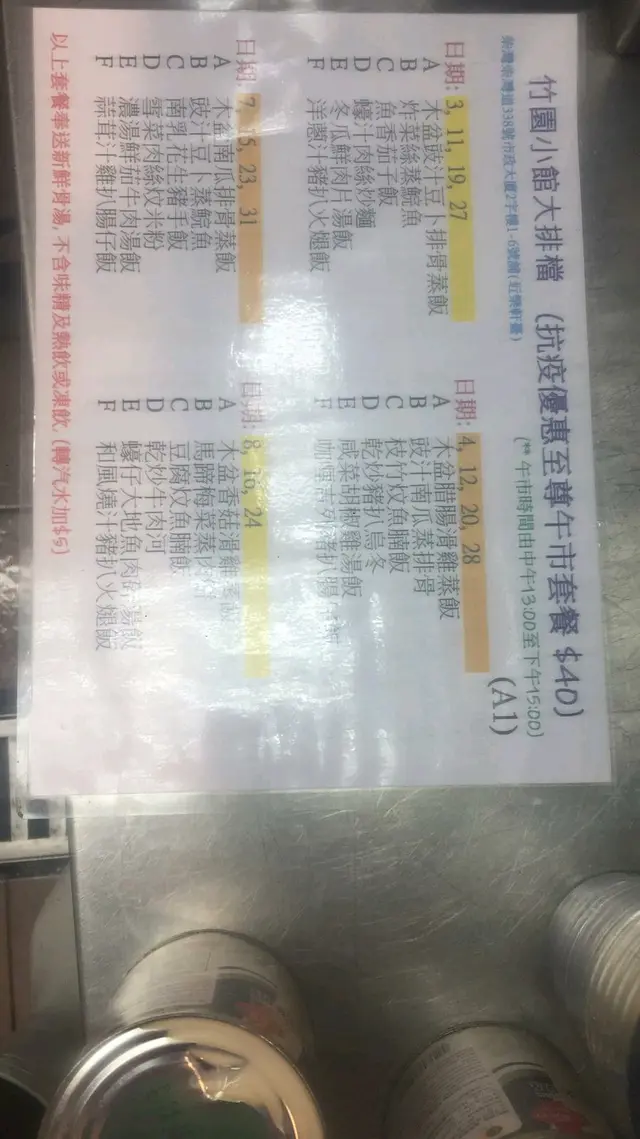 竹園小館大排檔 (抗疫優惠至尊午市套餐 $40)
柴灣柴灣道338號市政大廈2字樓1-6號舖
(** 午市時間由中午13:00至下午15:00)
(A1)
日期: 3, 11, 19, 27
A 木盆豉汁豆卜排骨蒸飯
B 炸菜絲蒸鯇魚
C 魚香茄子飯
D 蠔汁肉絲炒麵
E 冬瓜鮮肉片湯飯
F 洋蔥汁豬扒火腿飯
日期: 4, 12, 20, 28
A 木盆腊腸滑雞蒸飯
B 豉汁南瓜蒸排骨
C 枝竹炆魚腩飯
D 乾炒豬扒烏冬
E 咸菜胡椒雞湯飯
F
日期: 7, 15, 23, 31
A 木盆南瓜排骨蒸飯
B 豉汁豆卜蒸鯇魚
C 南乳花生豬手飯
D 雪菜肉絲炆米粉
E 濃湯鮮茄牛肉湯飯
F 蒜茸汁雞扒腸仔飯
日期: 8, 16, 24
A 木盆香菇滑雞蒸飯
B 馬蹄梅菜蒸肉
C 豆腐炆魚腩飯
D 乾炒牛肉河
E 蠔仔大地魚肉碎湯飯
F 和風燒汁豬扒火腿飯
以上套餐奉送新鮮骨湯, 不含味精及熱飲或凍飲. (轉汽水加$5)